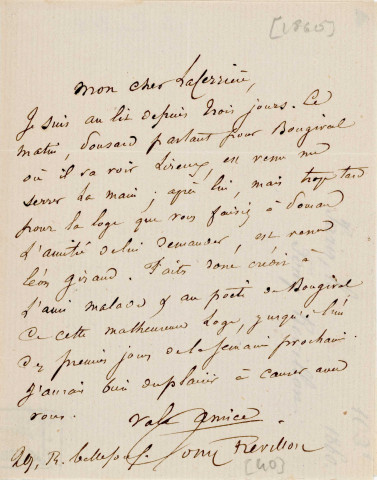 [1865]
mon cher Laferrière,
Je suis au lit depuis trois jours. Ce
matin, Dousard partant pour Bougival
où il va voir Lireux, est venu me
serrer la main; après lui, mais trop tard
pour la loge que vous faisiez à
d'amitié de lui demander, est venu
léon Giraud. Faits donc crédit à
l'ami malade & au poète de Bougival
de cette malheureuse loge, jusqu'à l'un
des premiers jours de la semaine prochaine.
J'aurais bien du plaisir à causer avec
vous.
Vale amice
29, R. bellefond. Tony Révillon
[40]